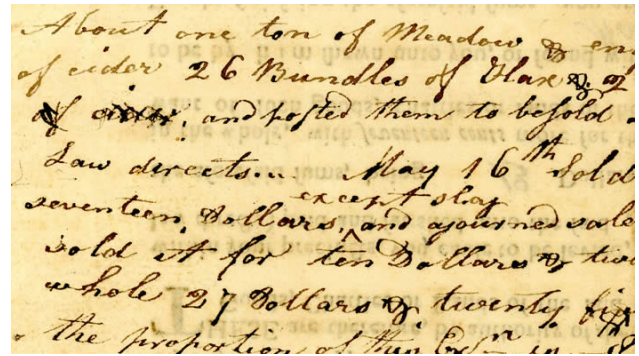 About one ton of Meadow & en
of cider 26 Bundles of Flax & 2
and posted them to be sold
Law directs... May 16th Sold
except
seventeen Dollars, and ajourned sale
sold it for ten Dollars & twe
whole 27 Dollars & twenty
the proportion of this